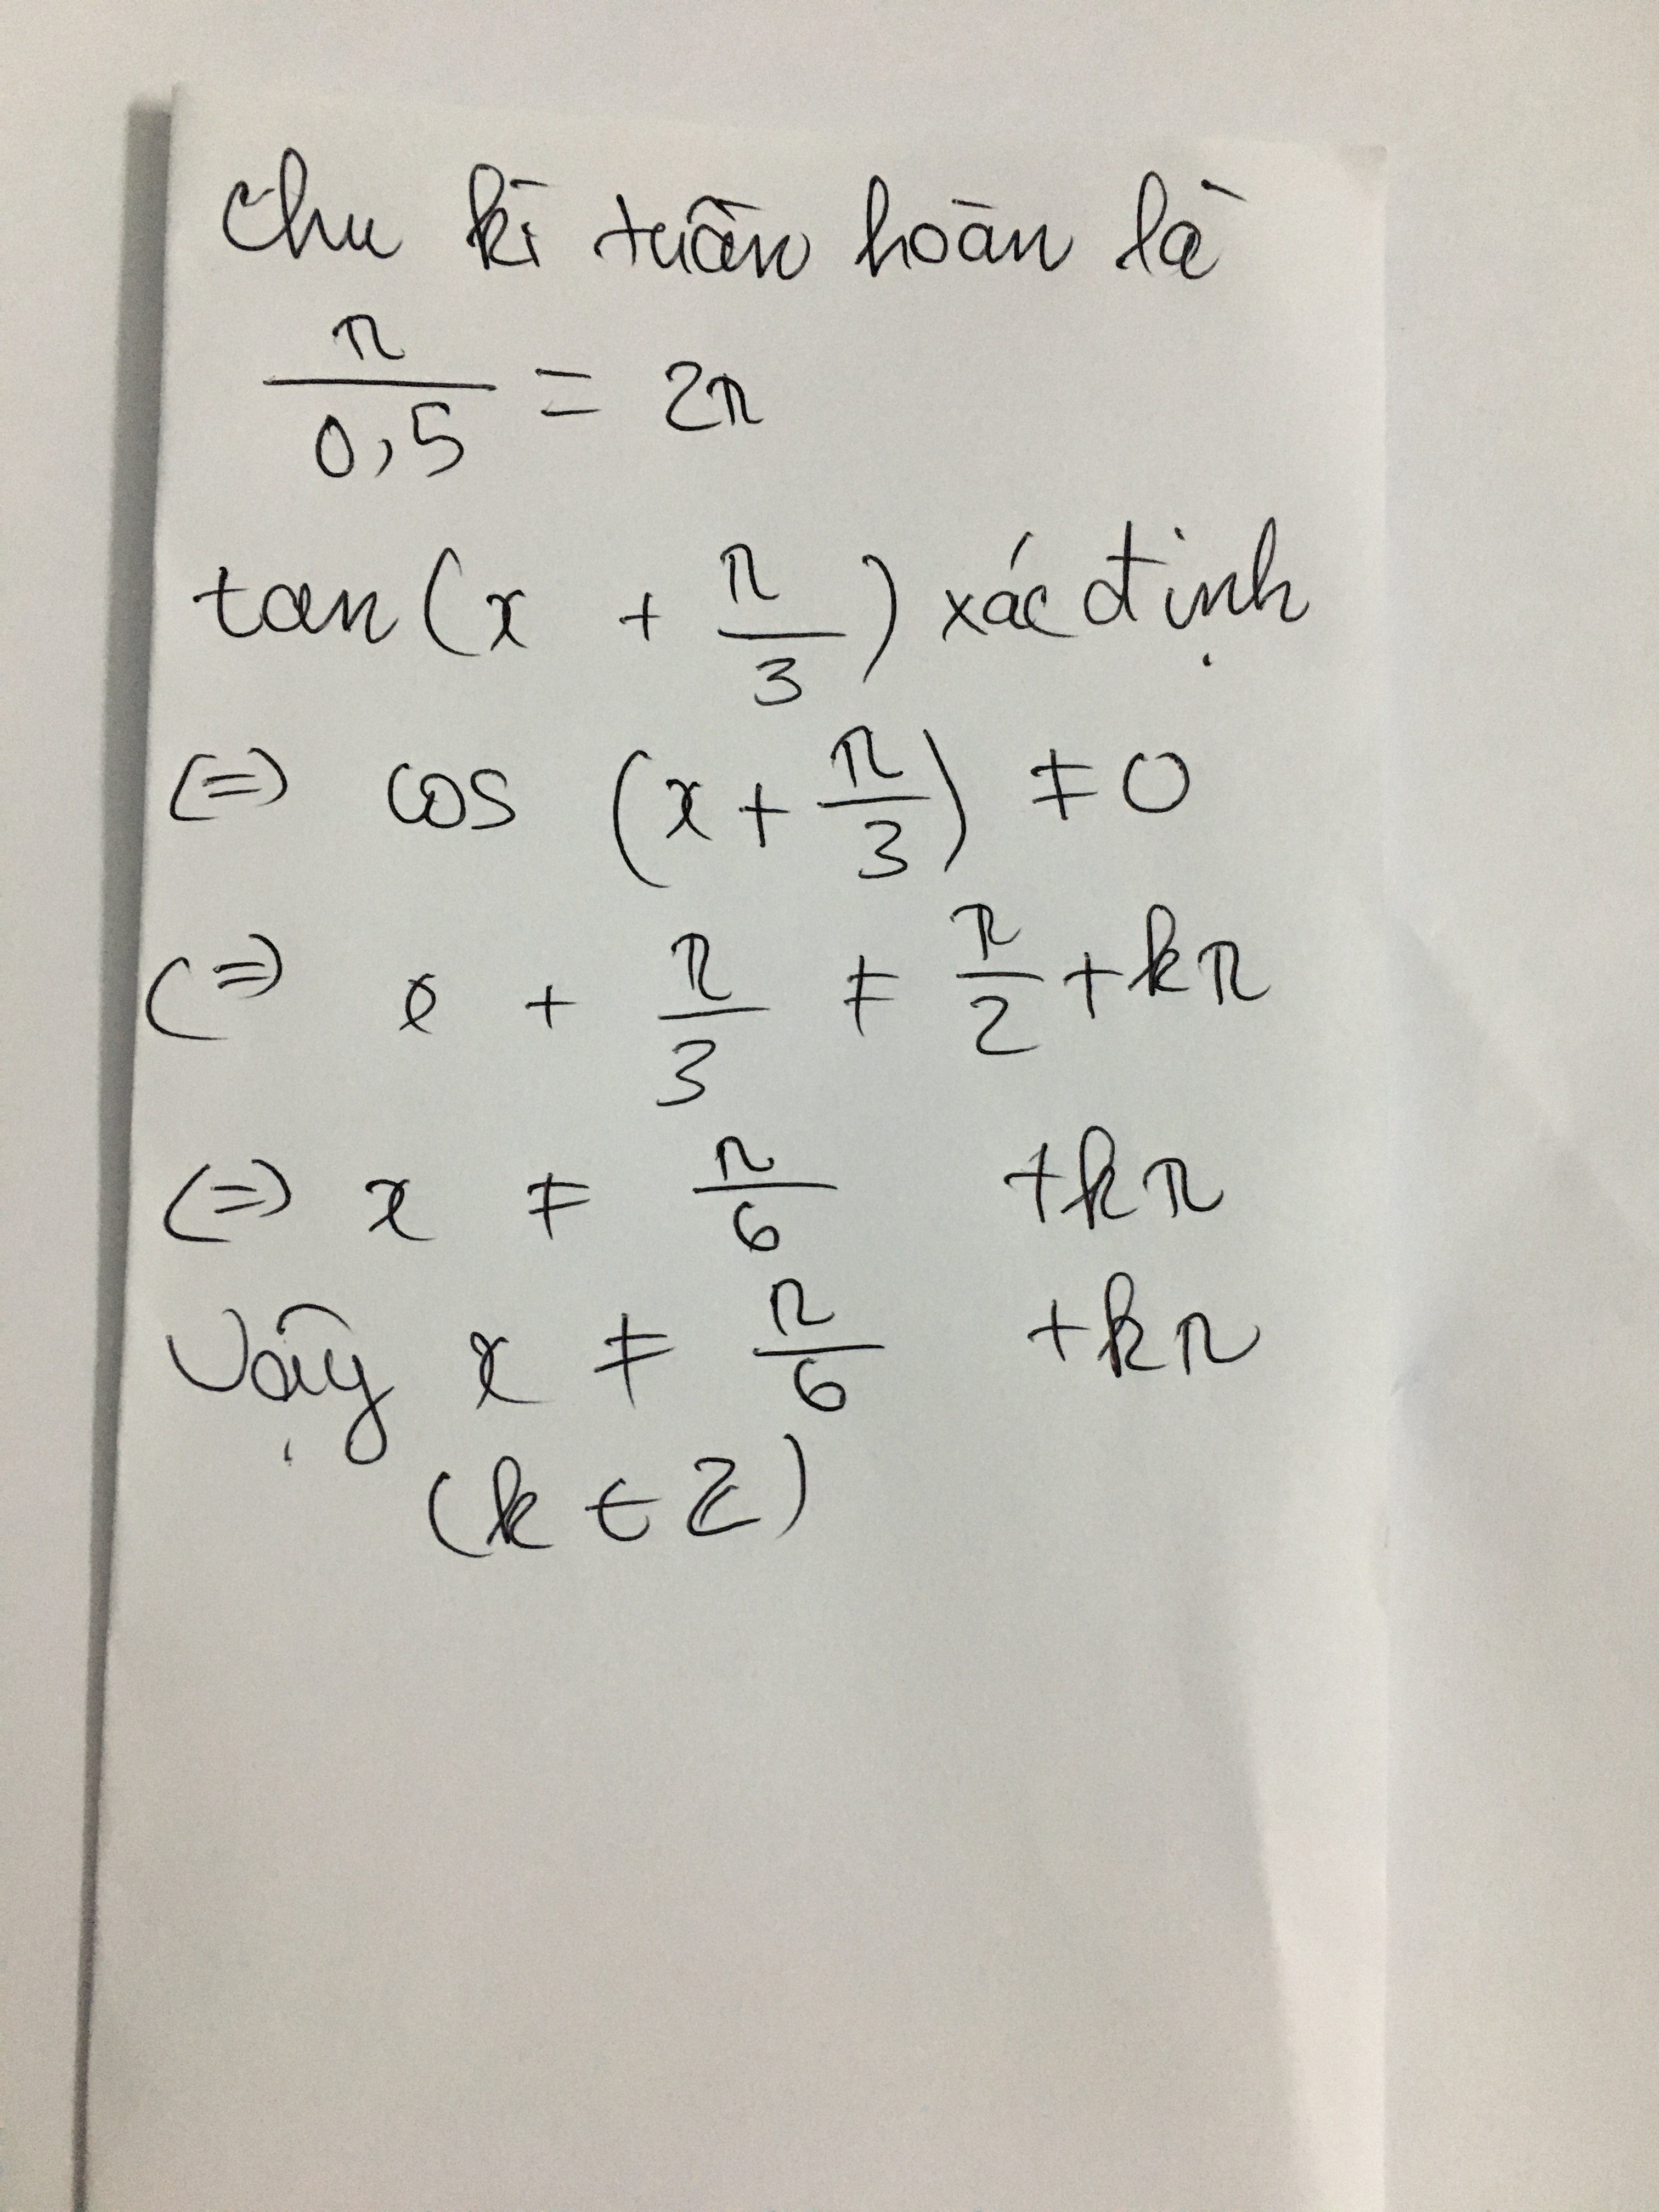 Chu kì tuần hoàn là
π/0,5 = 2π
tan(x + π/3) xác định
(=) cos (x + π/3) ≠ 0
(=) x + π/3 ≠ π/2 + kπ
(=) x ≠ π/6 + kπ
Vậy x ≠ π/6 + kπ
(k ∈ Z)